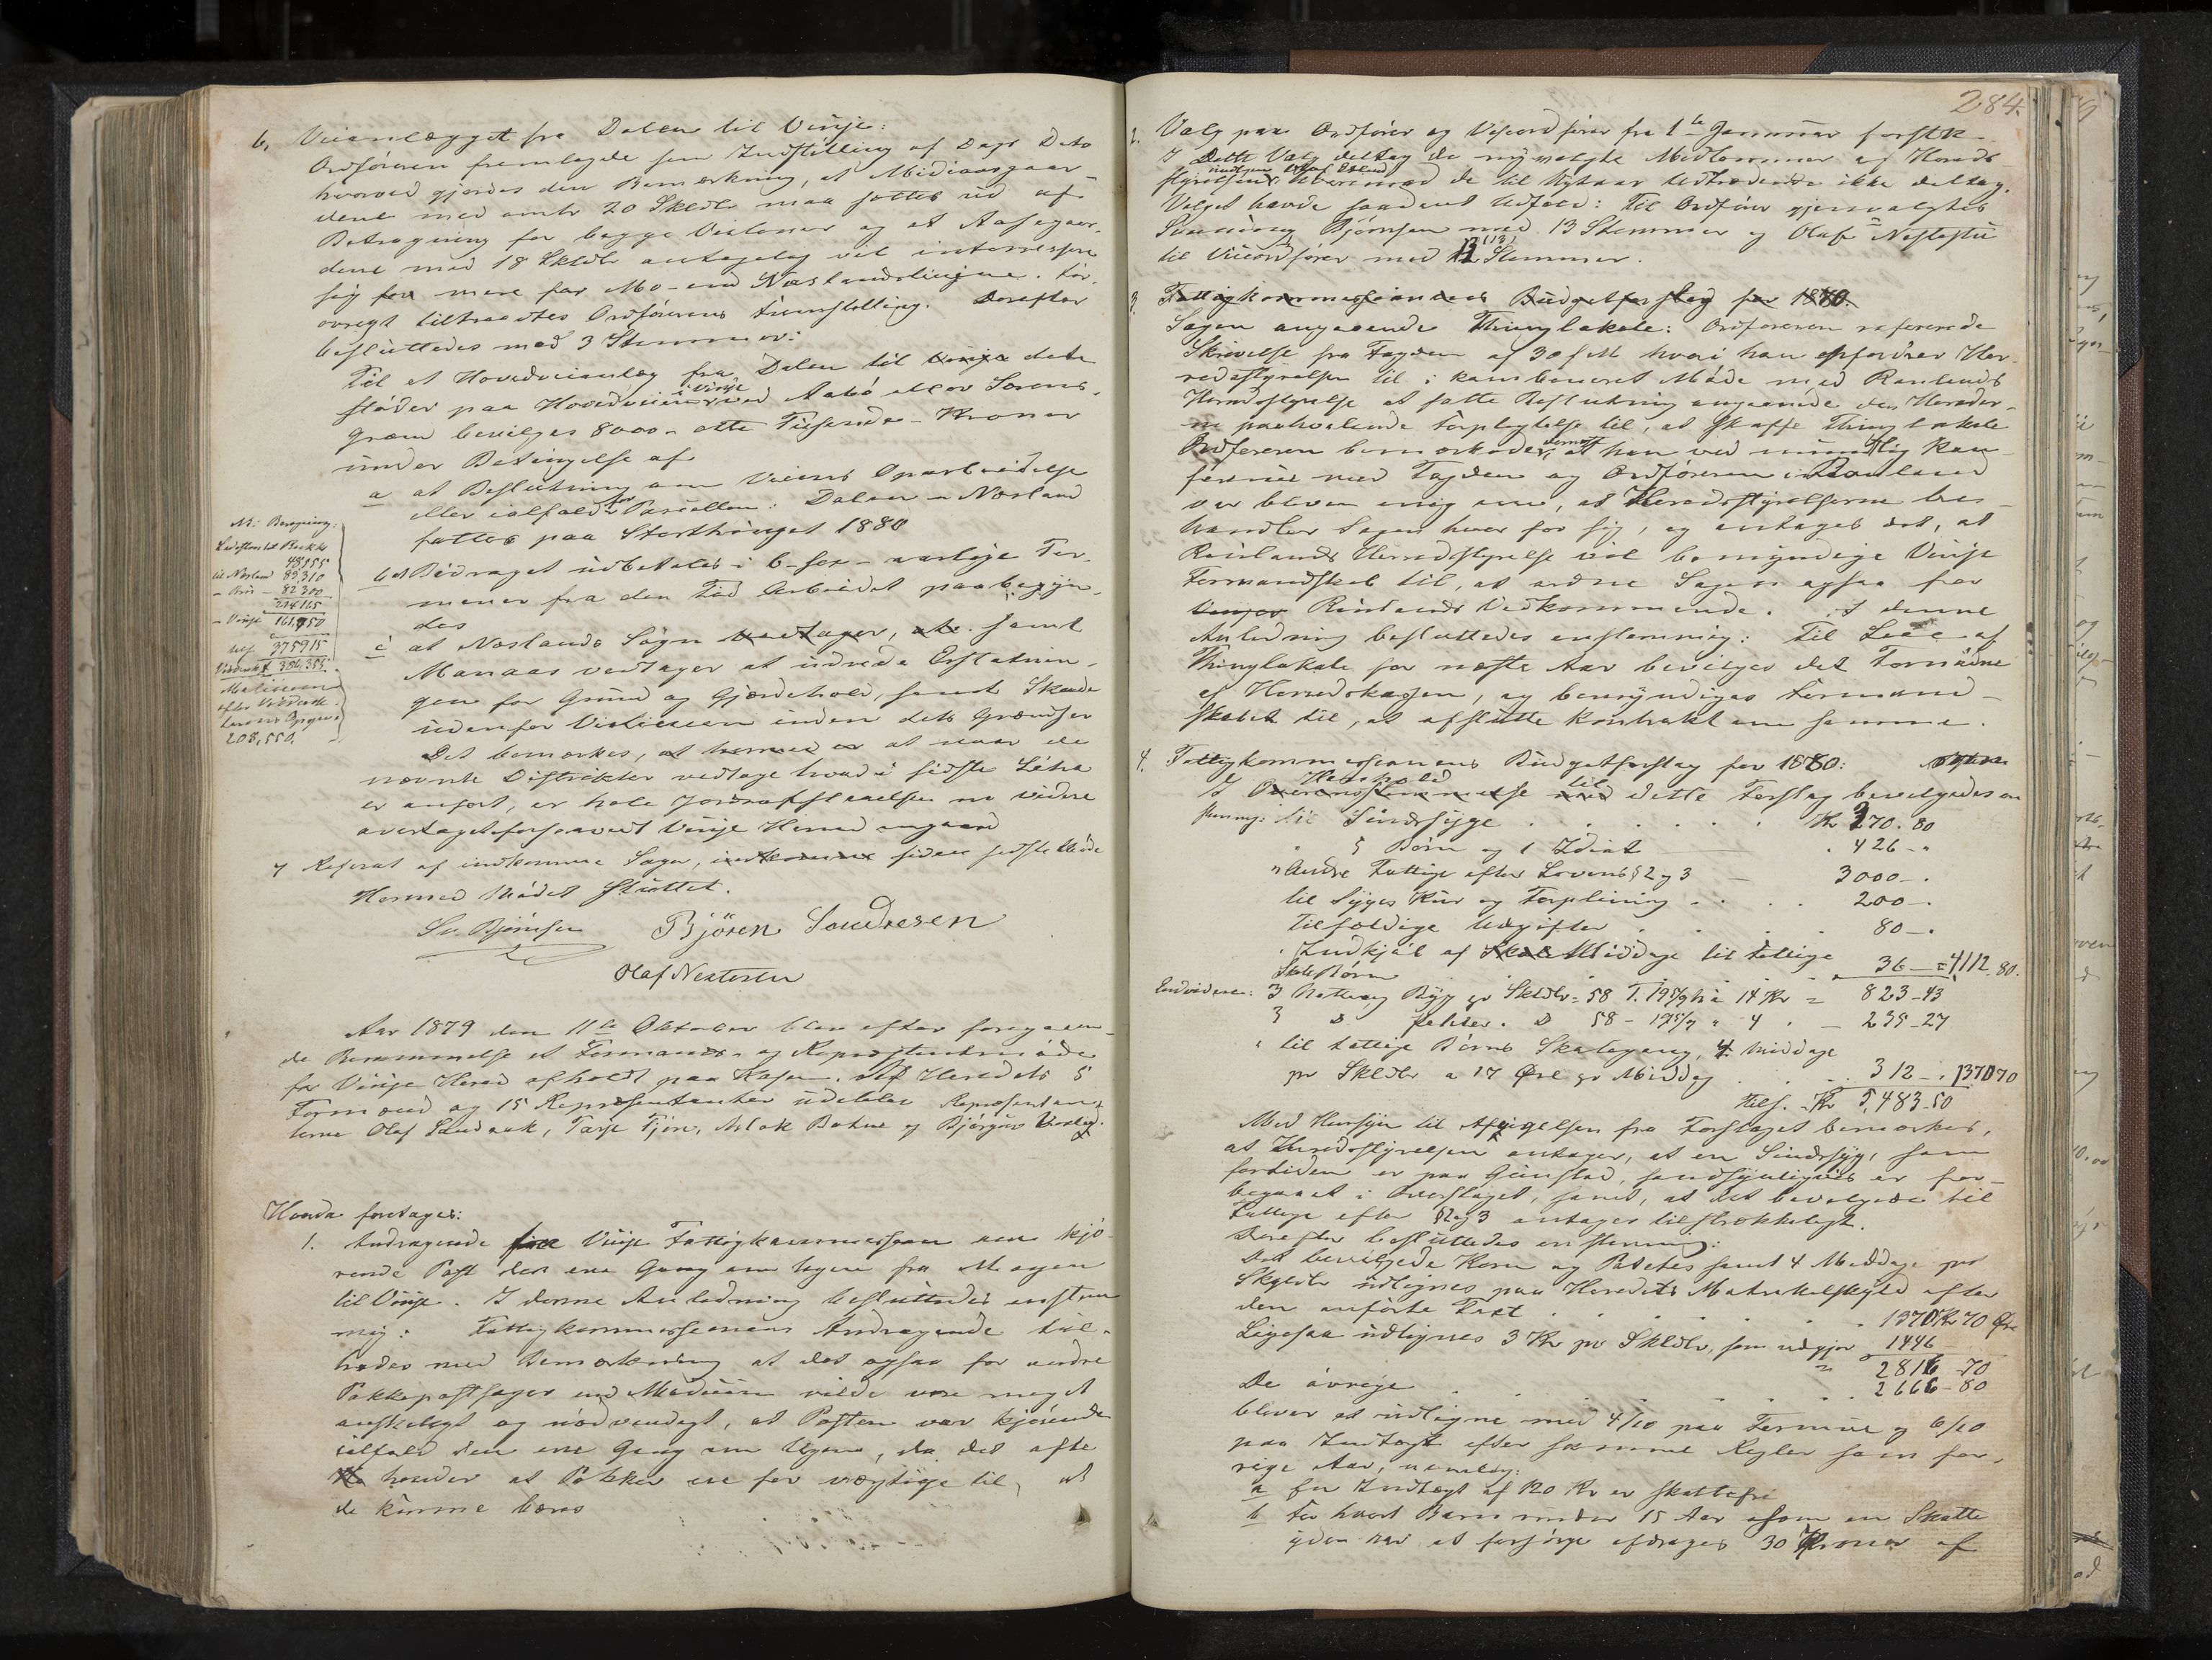 6, Veianlægget fra Dalen til Vinje:
Ordføreren fremlagde sin Indstilling af Dags Dato
hvorved gjordes den Bemærkning, at Midiaasgaar-
dene med omtr 20 Skkdlr maa sættes ud af
Betragtning for begge Veilinier og at Aasegaar-
dene med 18 Skkdlr antagelig vil interressere
sig for mere for Mo- end Næslandslinjene. For
øvrigt tiltraadtes Ordførerens Fremstilling. Derefter
besluttedes med 3 Stemmer:
Til et Hovedveianlæg fra Dalen til Vinje dets
støder paa Hovedveien i Vinje ved Aabø eller Sørens-
græn bevilges 8000- otte Tusende- Kroner
under Betingelse af
a at Beslutning om Veiens Oparbeidelse
eller ialfald for Parcellen: Dalen - Næsland
fattes paa Storthinget 1880
b at Bidraget udbetales i 6-sex- aarlige Ter-
miner fra den Tid Arbeidet paabegyn-
des
c at Næslands Sogn vedtager, samt
Manaas vedtager at udrede Erstatnin-
gen for Grund og Gjærdehold, samt Skade
udenfor Veilinien inden dets Grændser
Det bemærkes, at at naar de
nævnte Distrikter vedtage hvad i sidste Litra
er anført, er hele Jordafstaaelsen m vidre
overtaget forsaavidt Vinje Herred angaaer
NB: Beregning:
48155
til Næsland 83,310
82300
214165
- Vinje 161,750
tils. 375915
208,550.
7 Referat af indkomne Sager, indkomne siden sidste Møde
Hermed Mødet sluttet.
Sv. Bjørnsen Bjøren Sondresen
Olaf Nestestu
Aar 1879 den 11te Oktober blev efter foregaaen-
de Berammelse et Formands- og Repræsentantmøde
for Vinje Hered afholdt paa Kosen. Af Heredets 5
Formænd og 15 Repræsentanter udeblev Repræsentan-
terne Olaf Sandnæk, Tarje Fjøne, Aslak Bakne og Bjørguv Vaalig.
Hvorda foretoges:
1. Andragende fra Vinje Fattigkommission om kjø-
rende Post den ene Gang om Ugen fra Mogen
til Vinje. I denne Anledning besluttedes enstem
mig: Fattigkommissionens Andragende til-
trædes med Bemærkning at det ogsaa for andre
Pakkepostsager end Medicin vilde være meget
ønskeligt og nødvendigt, at Posten var kjørende
ialfald den ene Gang om Ugen, da det ofte
hender at Pakker ere for vægtige til, at
de kunne bæres
284.
2. Valg paa Ordfører og Viceordfører fra 1te Januar førstk.
I Dette Valg deltog de nyvalgte Medlemmer af Hereds
styrelsen hvorimod de til Nytaar Udtrædende ikke deltog.
Valget havde saadant Udfald: Til Ordfører gjenvalgtes
Svenning Bjørnsen med 13 Stemmer og Olaf Nestestu
til Viceordfører med 13 (13) Stemmer.
3. Fattigkommissionens Budgetforslag for 1880.
Sagen angaaende Thinglokale: Ordføreren refererede
Skrivelse fra Fogden af 30 f M hvori han opfordrer Her-
redsstyrelsen til i kombineret Møde med Raulands
Heredsstyrelse at fatte Beslutning angaaende den Hereder-
ne paahvilende Forpligtelse til, at skaffe Thinglokale
Ordføreren bemærkede dernæst, at han ved mundtlig Kon-
ference med Fogden og Ordføreren i Rauland
var bleven enig om, at Heredsstyrelserne be-
handler Sagen hver for sig, og antages det, at
Raulands Heredsstyrelse vil bemyndige Vinje
Formandskab til, at ordne Sagen ogsaa for
Vinjes Raulands Vedkommende. I denne
Anledning besluttedes enstemmig: Til Leie af
Thinglokale for næste Aar bevilges det Fornødne
af Herredskassen, og bemyndiges Formand-
skabet til, at afslutte Kontrakt om samme.
4. Fattigkommissionens Budgetforslag for 1880:
I Overensstemmelse med Henhold til dette Forslag bevilgedes en
stemmig: til Sindssyge . . . . Kr 370. 80
" 5 Børn og 1 Idiot " 426 - "
" Andre Fattige efter Lovens § 2 og 3 — 3000 - .
til Syges Kur og Forpleining . . . 200 - .
Tilfældige Udgifter . . . 80 - .
. Indkjøb af Skol Middage til Fattige
SkoleBørn . . . 36 — = 4112. 80.
Endvidere: 3 Byg pr Skkdlr = 58 T. 19 5/9 à 14 Kr = 823 - 43
3 D D 58 - 19 5/9 " 4 . — 235 - 27
" til Fattige Børns Skolegang, 4 Middage
pr Skkdlr a 17 Øre pr Middag . . 312 - . 1370 70
tils. Kr 5,483 - 50
Med Hensyn til Afvigelsen fra Forslaget bemærkes,
at Heredsstyrelsen antager, at en Sindssyg, som
fortiden er paa Gaustad, sandsynligvis er for-
begaaet i Overslaget, samt, at det bevilgede til
Fattige efter § 2 og 3 antages tilstrækkeligt.
Derefter besluttedes enstemmig:
Det bevilgede Korn og Potetes samt 4 Middage pr
Skylddr udlignes paa Heredets Matrikelskyld efter
den anførte Taxt . . . . 1370 Kr 70 Øre
Ligesaa udlignes 3 Kr pr Skkdlr, som udgjør 1446
= 2816 - 70
De øvrige . . . . 2666 - 80
bliver at udligne med 4/10 paa Formue og 6/10
paa Indtægt efter samme Regler som for-
rige Aar, nemlig:
a en Indtægt af 120 Kr er skattefri
b For hvert Barn under 15 Aar som en Skatte
yder har at forsørge afdrages 30 Kroner af